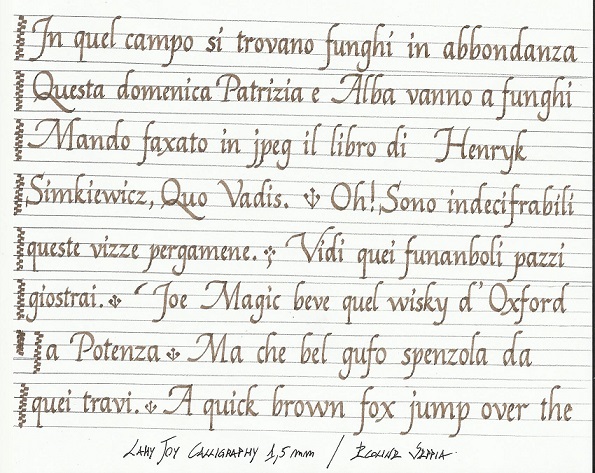 In quel campo si trovano funghi in abbondanza
Questa domenica Patrizia e Alba vanno a funghi
Mando faxato in jpeg il libro di Henryk
Simkiewicz, Quo Vadis. Oh! Sono indecifrabili
queste vizze pergamene. Vidi quei funanboli pazzi
giostrai. Joe Magic beve quel wisky d'Oxford
a Potenza Ma che bel gufo spenzola da
quei travi. A quick brown fox jump over the
LAMY JOY CALLIGRAPHY 1,5 mm / ECOLINE SEPPIA